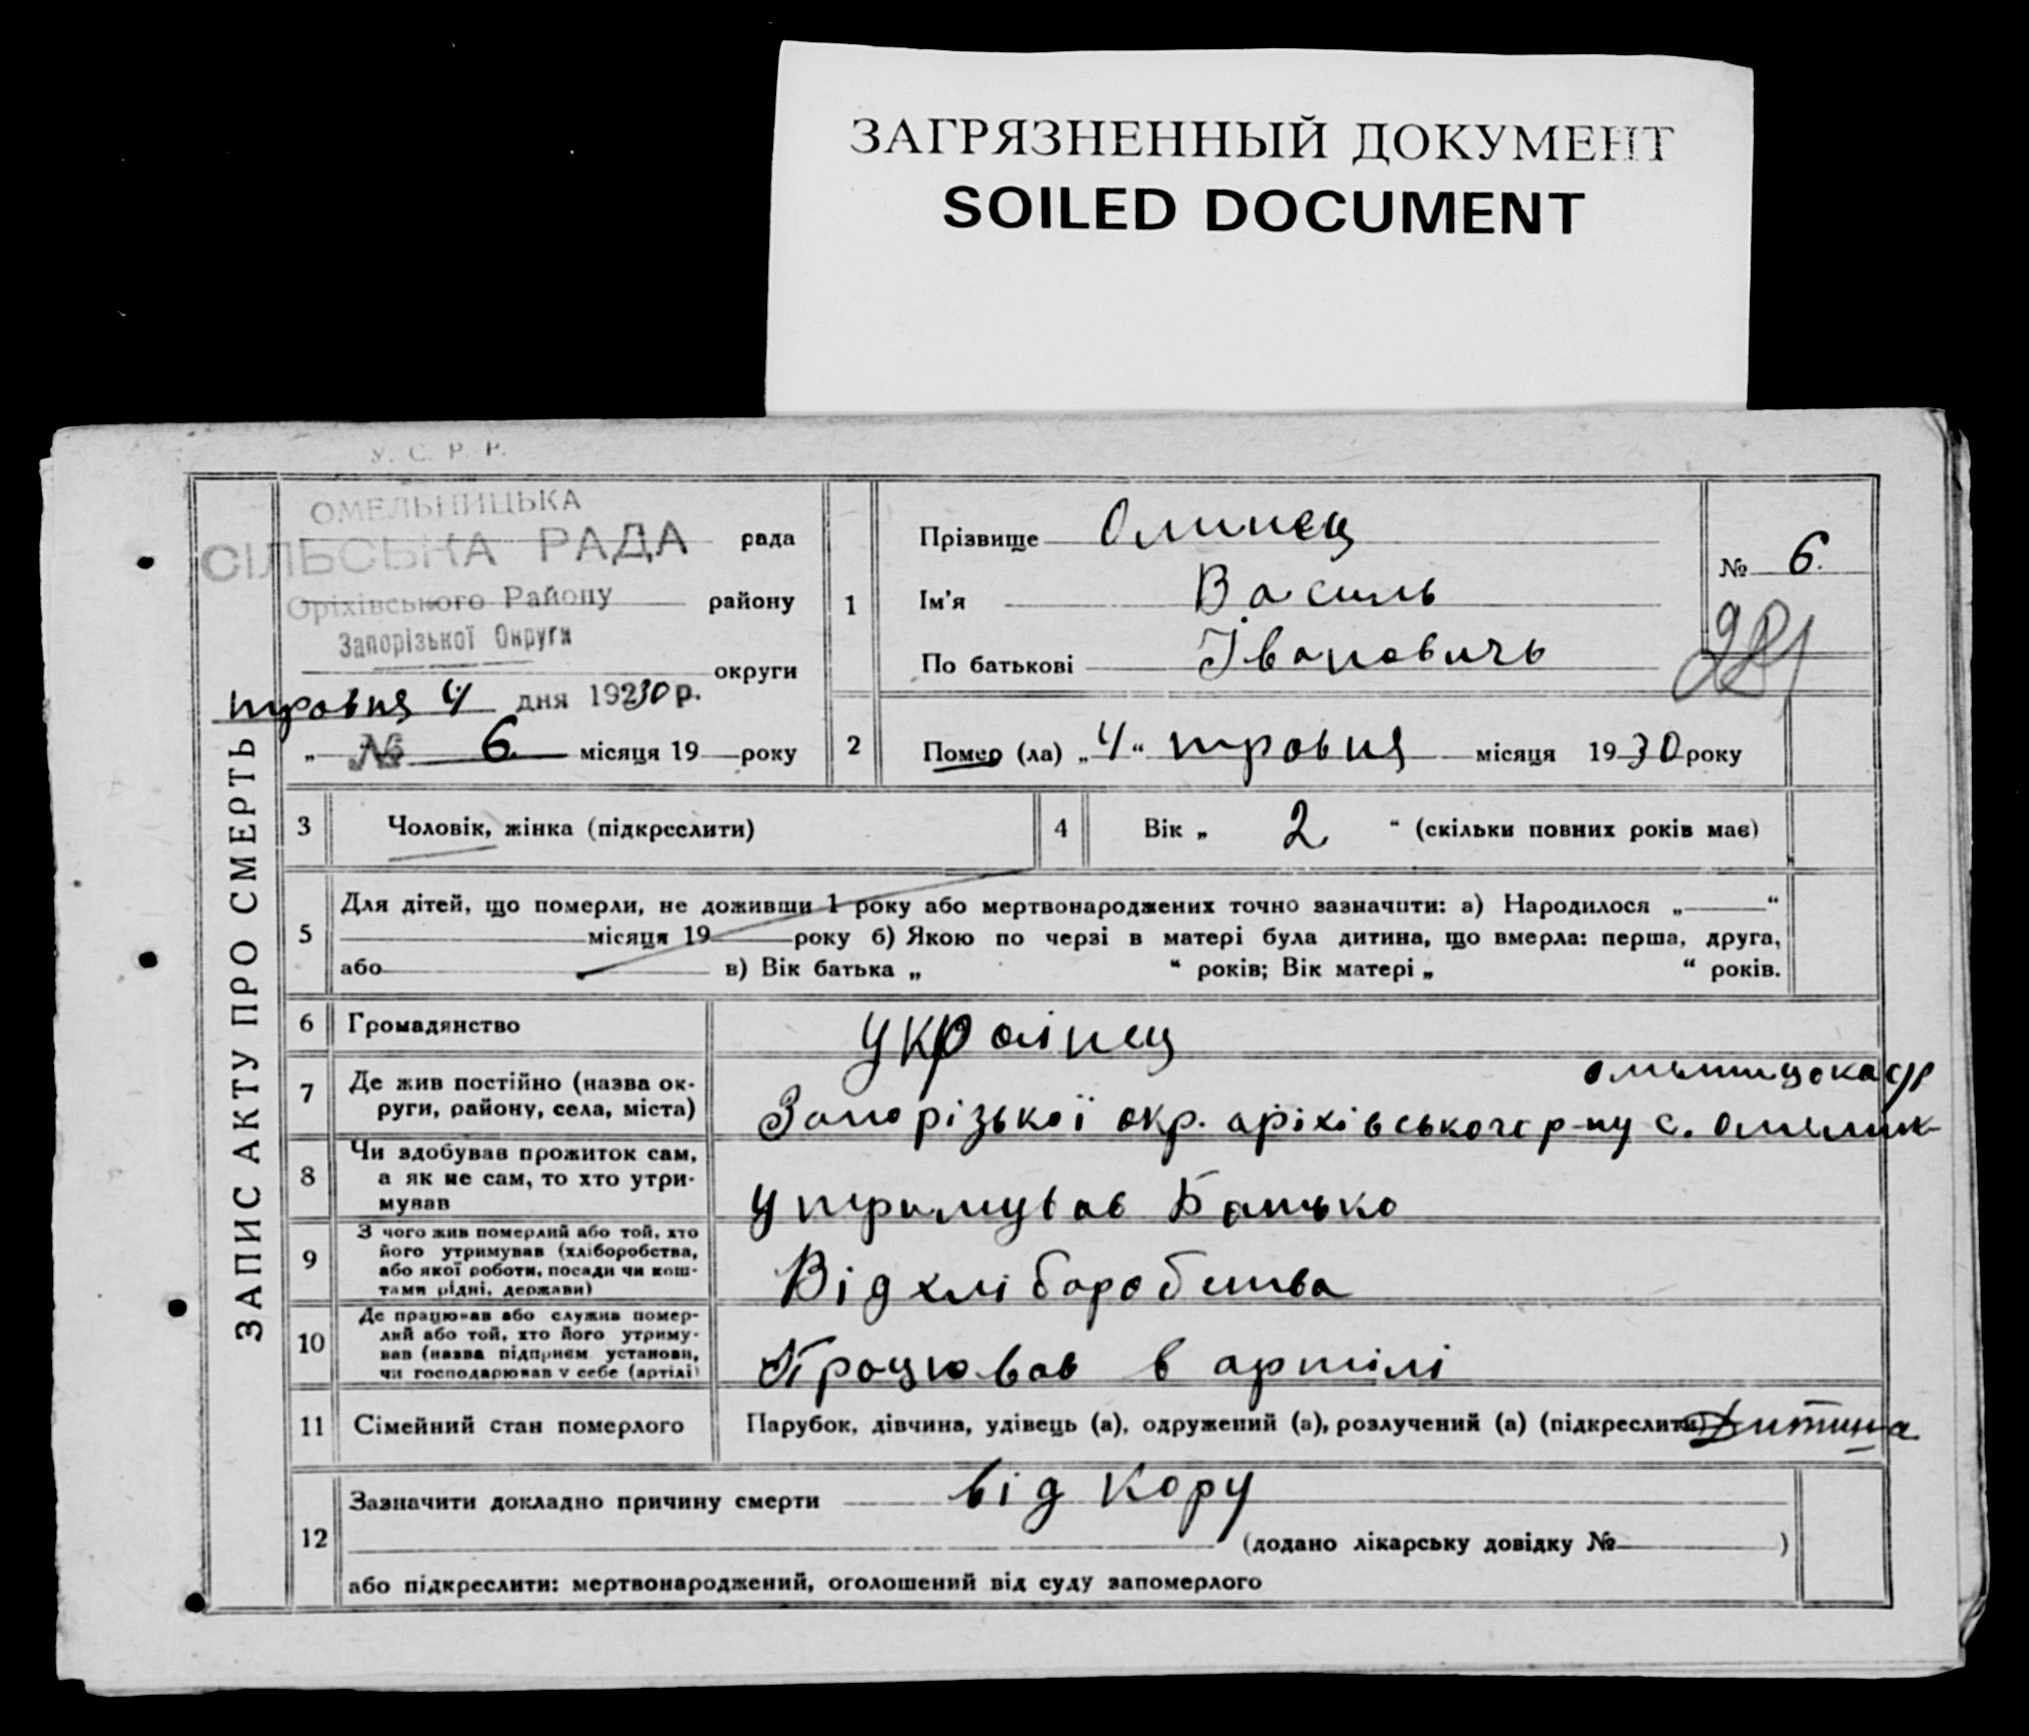 ЗАГРЯЗНЕННЫЙ ДОКУМЕНТ
SOILED DOCUMENT
У. С. Р. Р.
ЗАПИС АКТУ ПРО СМЕРТЬ
ОМЕЛЬНИЦЬКА
СІЛЬСЬКА РАДА рада
Оріхівського Району району
Запорізької Округи
округи
травня 4 дня 1930 р.
„ № 6. місяця 19 року
1
Прізвище Олинец
Ім'я Василь
По батькові Івановичь
№ 6.
281
2 Помер (ла) „4“ травня місяця 1930 року
3 Чоловік, жінка (підкреслити)
4 Вік „ 2 “ (скільки повних років має)
5 Для дітей, що померли, не доживши 1 року або мертвонароджених точно зазначити: а) Народилося „ “
місяця 19 року б) Якою по черзі в матері була дитина, що вмерла: перша, друга,
або в) Вік батька „ “ років; Вік матері „ “ років.
6 Громадянство Українец
7 Де жив постійно (назва ок-
руги, району, села, міста)
Запорізької окр. оріхівського р-ну с.
8 Чи здобував прожиток сам,
а як не сам, то хто утри-
мував
Утримував Батько
9 З чого жив померлий або той, хто
його утримував (хліборобства,
або якої роботи, посади чи кош-
тами рідні, держави)
Від хліборобства
10 Де працював або служив помер-
лий або той, хто його утриму-
вав (назва підприєм. установи,
чи господарював у себе (артілі)
Працював в артілі
11 Сімейний стан померлого Парубок, дівчина, удівець (а), одружений (а), розлучений (а) (підкреслити) Дитина
12 Зазначити докладно причину смерти від кору
(додано лікарську довідку № )
або підкреслити: мертвонароджений, оголошений від суду запомерлого